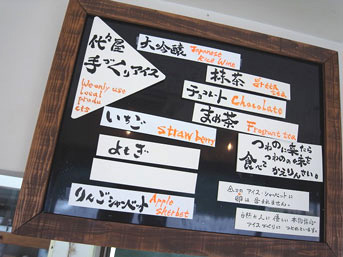 代々屋
手づくりアイス
We only use
local
produ
cts
大吟醸 Japanese
Rice Wine
抹茶 Green
tea
チョコレート Chocolate
まめ茶 Fragrant tea
いちご strawberry
よもぎ
りんごシャーベット Apple
sherbet
つわのに来たら
つわのの味を
食べてかえりんさい。